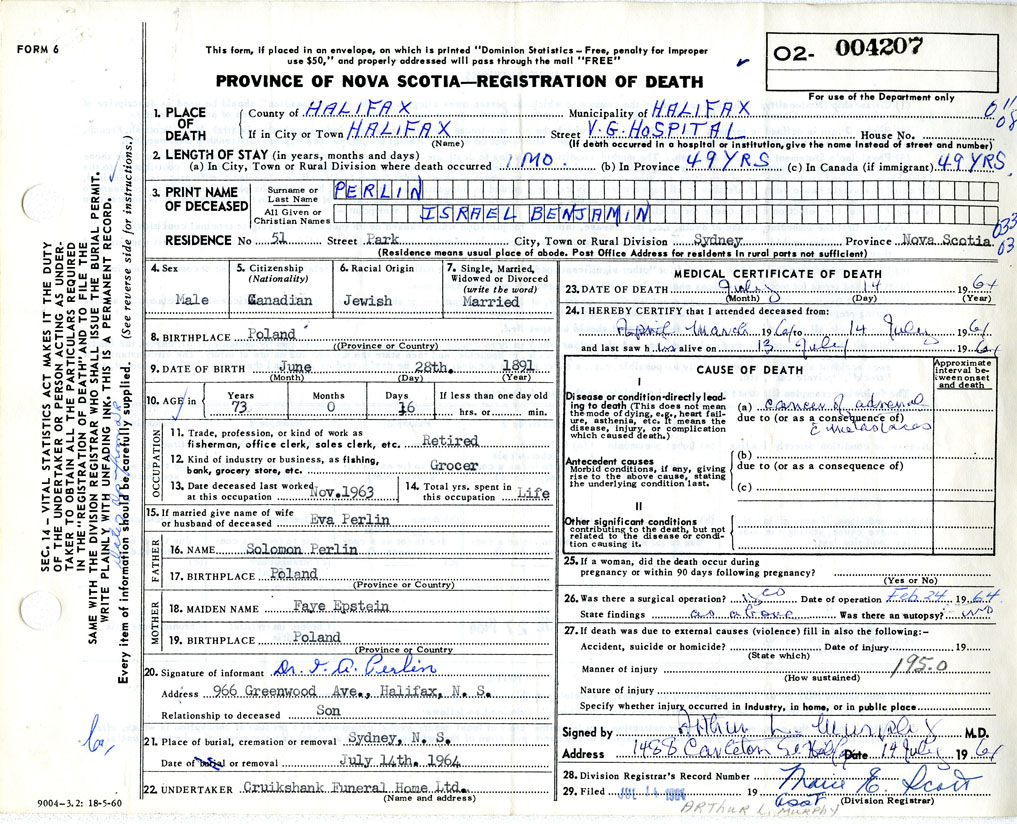 FORM 6
This form, if placed in an envelope, on which is printed "Dominion Statistics – Free, penalty for improper
use $50," and properly addressed will pass through the mail "FREE"
O2- 004207
PROVINCE OF NOVA SCOTIA—REGISTRATION OF DEATH
For use of the Department only
SEC. 14 – VITAL STATISTICS ACT MAKES IT THE DUTY
OF THE UNDERTAKER OR PERSON ACTING AS UNDER-
TAKER TO OBTAIN ALL THE PARTICULARS REQUIRED
IN THE "REGISTRATION OF DEATH" AND TO FILE THE
SAME WITH THE DIVISION REGISTRAR WHO SHALL ISSUE THE BURIAL PERMIT.
WRITE PLAINLY WITH UNFADING INK. THIS IS A PERMANENT RECORD.
Every item of information should be carefully supplied. (See reverse side for instructions.)
1. PLACE OF DEATH
County of HALIFAX Municipality of HALIFAX
If in City or Town HALIFAX Street V.G. HOSPITAL House No.
(Name) (If death occurred in a hospital or institution, give the name instead of street and number)
2. LENGTH OF STAY (in years, months and days)
(a) In City, Town or Rural Division where death occurred 1 MO. (b) In Province 49 YRS (c) In Canada (if immigrant) 49 YRS
3. PRINT NAME OF DECEASED
Surname or Last Name PERLIN
All Given or Christian Names ISRAEL BENJAMIN
RESIDENCE No 51 Street Park City, Town or Rural Division Sydney Province Nova Scotia
(Residence means usual place of abode. Post Office Address for residents in rural parts not sufficient)
4. Sex Male
5. Citizenship (Nationality) Canadian
6. Racial Origin Jewish
7. Single, Married, Widowed or Divorced (write the word) Married
8. BIRTHPLACE Poland
((Province or Country)
9. DATE OF BIRTH June 28th. 1891
(Month) (Day) (Year)
10. AGE in Years 73 Months 0 Days 16 If less than one day old hrs. or min.
OCCUPATION
11. Trade, profession, or kind of work as
fisherman, office clerk, sales clerk, etc. Retired
12. Kind of industry or business, as fishing,
bank, grocery store, etc. Grocer
13. Date deceased last worked at this occupation Nov.1963
14. Total yrs. spent in this occupation Life
15. If married give name of wife
or husband of deceased Eva Perlin
FATHER
16. NAME Solomon Perlin
17. BIRTHPLACE Poland
(Province or Country)
MOTHER
18. MAIDEN NAME Faye Epstein
19. BIRTHPLACE Poland
(Province or Country
20. Signature of informant Dr. I. A. Perlin
Address 966 Greenwood Ave., Halifax, N. S.
Relationship to deceased Son
21. Place of burial, cremation or removal Sydney, N. S.
Date of burial or removal July 14th. 1964
22. UNDERTAKER Cruikshank Funeral Home Ltd.
(Name and address)
9004-3.2: 18-5-60
MEDICAL CERTIFICATE OF DEATH
23. DATE OF DEATH July 14 1964
(Month) (Day) (Year)
24. I HEREBY CERTIFY that I attended deceased from:
April March 1964 to 14 July 1964
and last saw h im alive on 13 July 1964
CAUSE OF DEATH
Approximate interval between onset and death
I
Disease or condition-directly lead-
ing to death (This does not mean
the mode of dying, e.g., heart fail-
ure, asthenia, etc. It means the
disease, injury, or complication
which caused death.)
(a) cancer of adrenal
due to (or as a consequence of)
c metastases
Antecedent causes
Morbid conditions, if any, giving
rise to the above cause, stating
the underlying condition last.
(b)
due to (or as a consequence of)
(c)
II
Other significant conditions
contributing to the death, but not
related to the disease or condi-
tion causing it.
25. If a woman, did the death occur during
pregnancy or within 90 days following pregnancy?
(Yes or No)
26. Was there a surgical operation? yes Date of operation Feb 24 1964
State findings as above Was there an autopsy? no
27. If death was due to external causes (violence) fill in also the following:–
Accident, suicide or homicide? Date of injury 19
(State which)
Manner of injury 195.0
(How sustained)
Nature of injury
Specify whether injury occurred in industry, in home, or in public place
Signed by Arthur L. Murphy M.D.
Address 1488 Carleton St. Hfx Date 14 July 1964
28. Division Registrar's Record Number
29. Filed JUL 14 1964 19 Marie E. Scott
asst (Division Registrar)
ARTHUR L. MURPHY